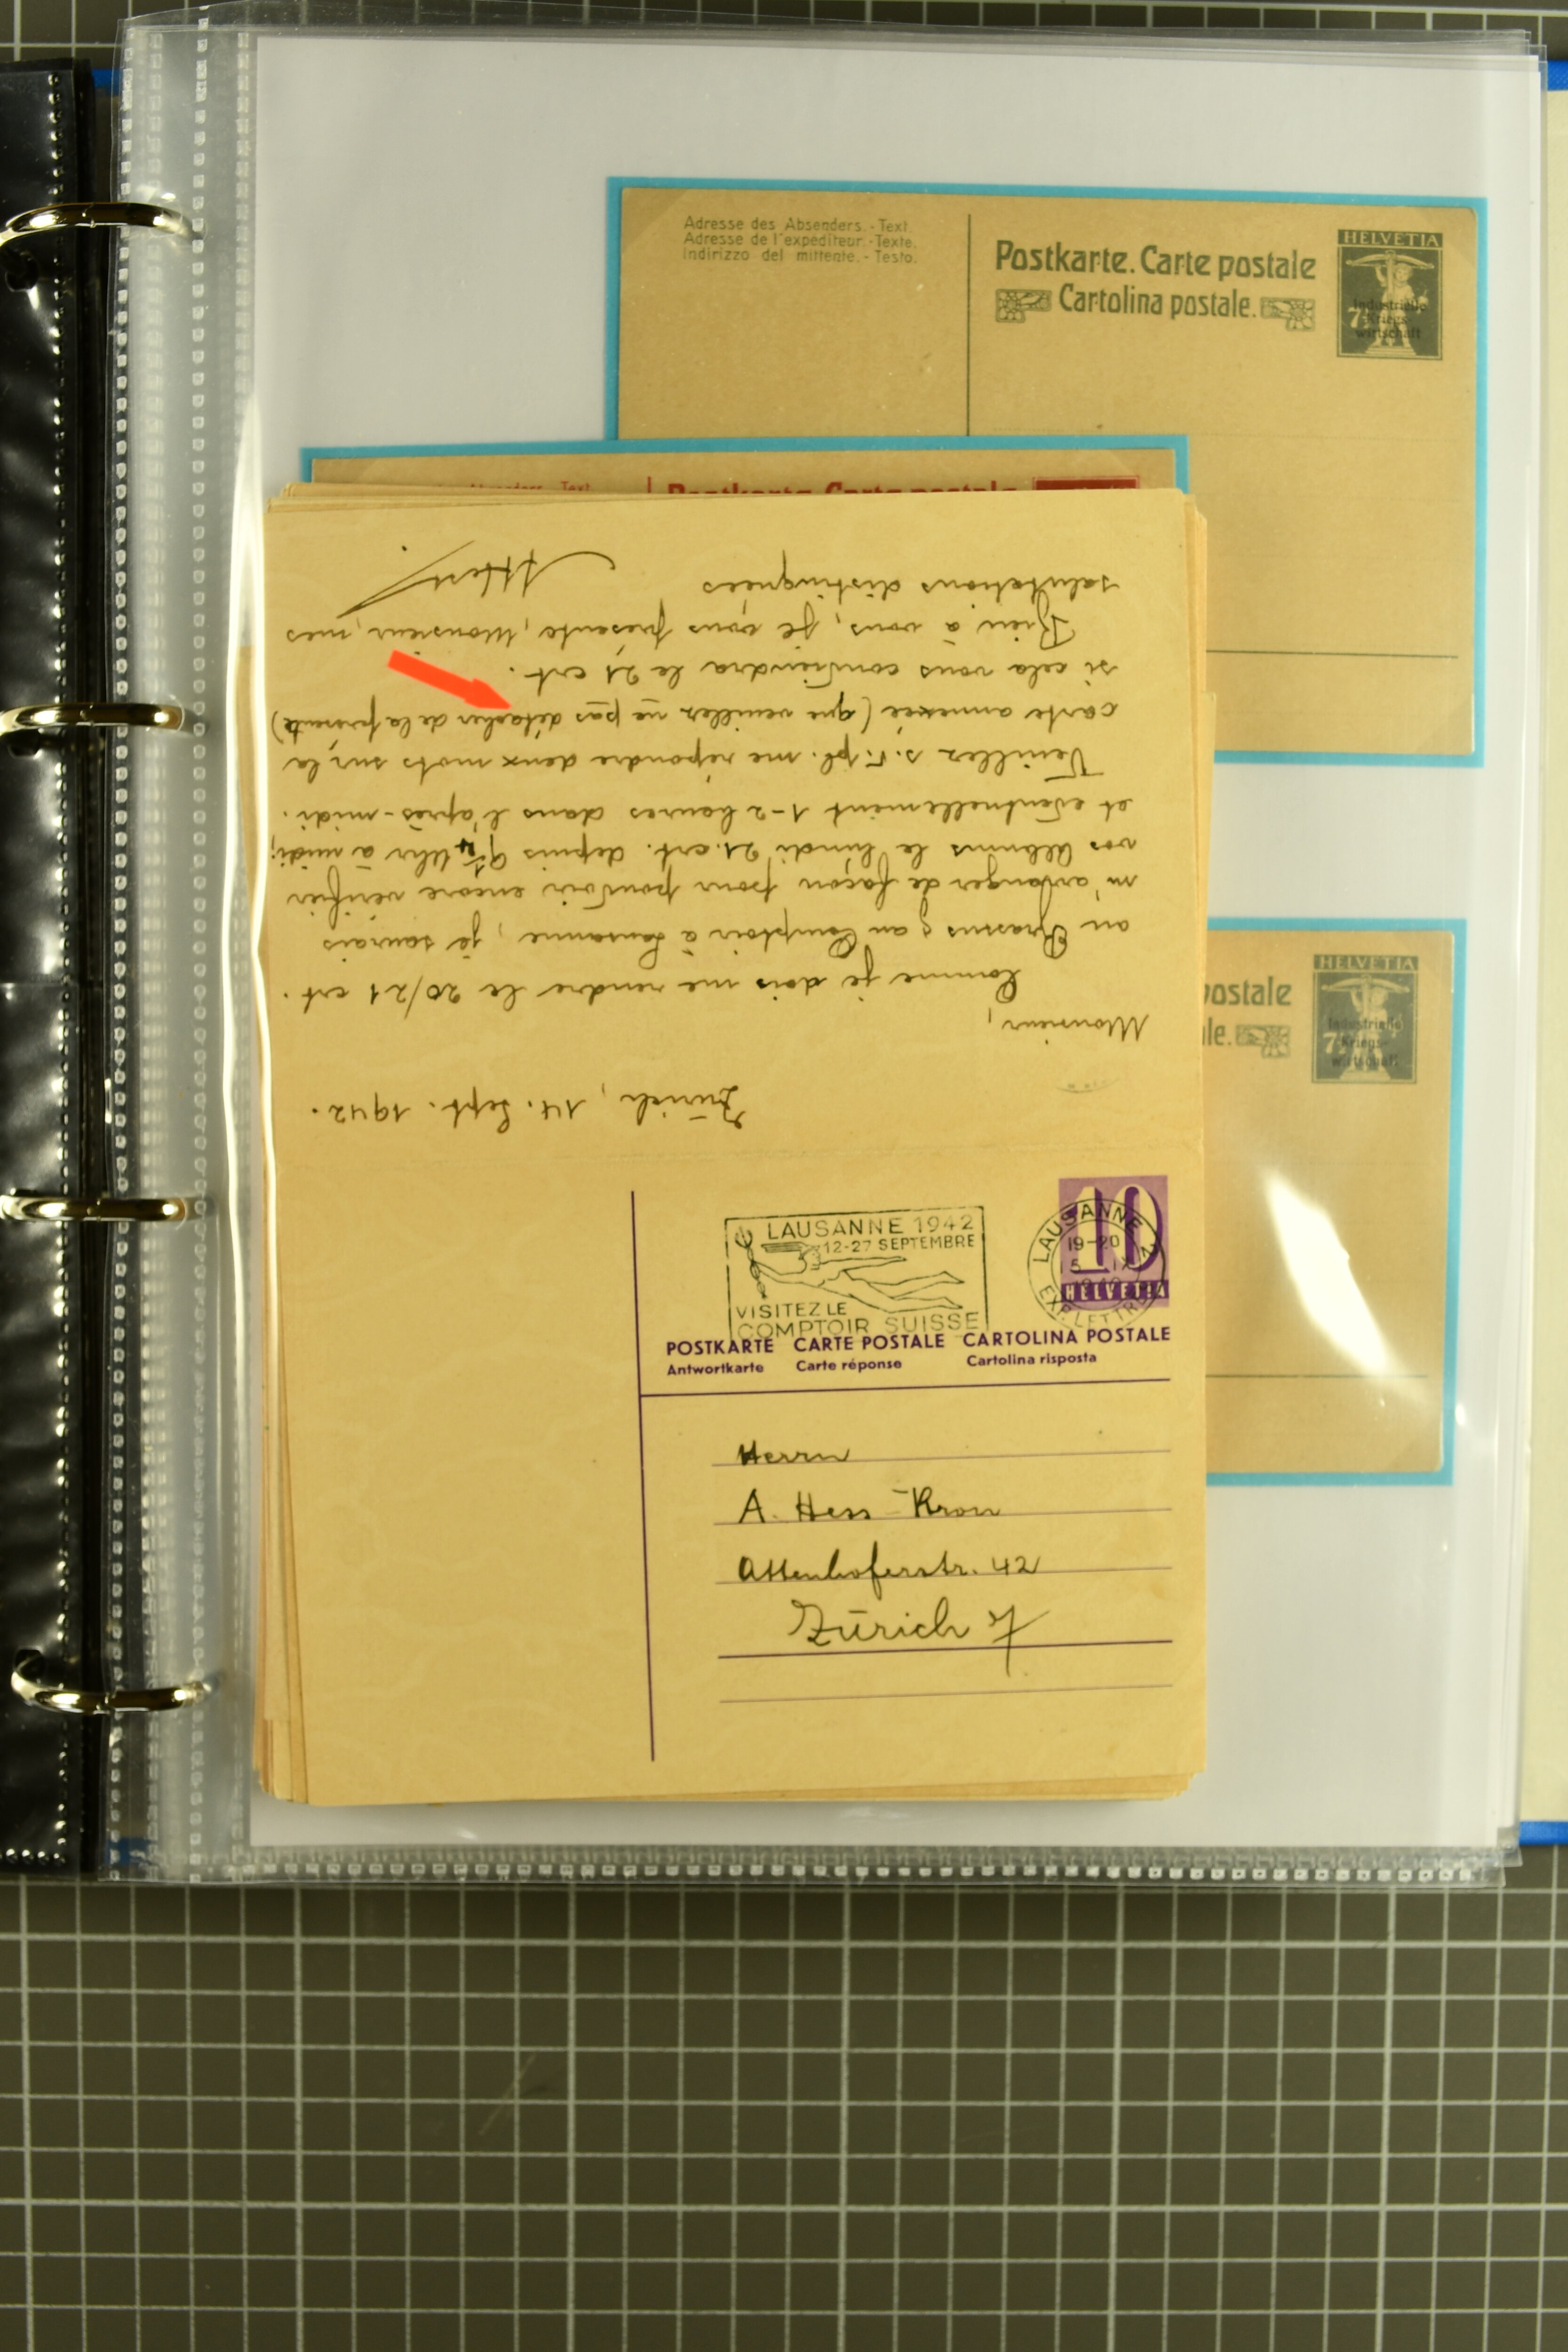 Adresse des Absenders. - Text.
Adresse de l'expéditeur. - Texte.
Indirizzo del mittente. - Testo.
Postkarte. Carte postale
Cartolina postale.
HELVETIA
Industrielle
7½ Kriegs-
wirtschaft
Absenders Text
Postkarte Carte postale
Zürich, 14. Sept. 1942.
Monsieur,
Comme je dois me rendre le 20/21 crt.
au Brassus & au Comptoir à Lausanne, je saurais
m'arranger de façon pour pouvoir encore vérifier
vos Albums le lundi 21. crt. depuis 9¼ Uhr à midi,
et éventuellement 1-2 heures dans l'après-midi.
Veuillez s.v.pl. me répondre deux mots sur la
carte annexée (que veuillez ne pas détacher de la présente)
si cela vous conviendra le 21 crt.
Bien à vous, je vous présente, Monsieur, mes
salutations distinguées
AHess
postale
le.
HELVETIA
Industrielle
7½ Kriegs-
wirtschaft
LAUSANNE 1942
12-27 SEPTEMBRE
VISITEZ LE
COMPTOIR SUISSE
10
HELVETIA
LAUSANNE 1
19-20
EXP. LETTRES
POSTKARTE CARTE POSTALE CARTOLINA POSTALE
Antwortkarte Carte réponse Cartolina risposta
Herrn
A. Hess-Kron
Attenhoferstr. 42
Zürich 7